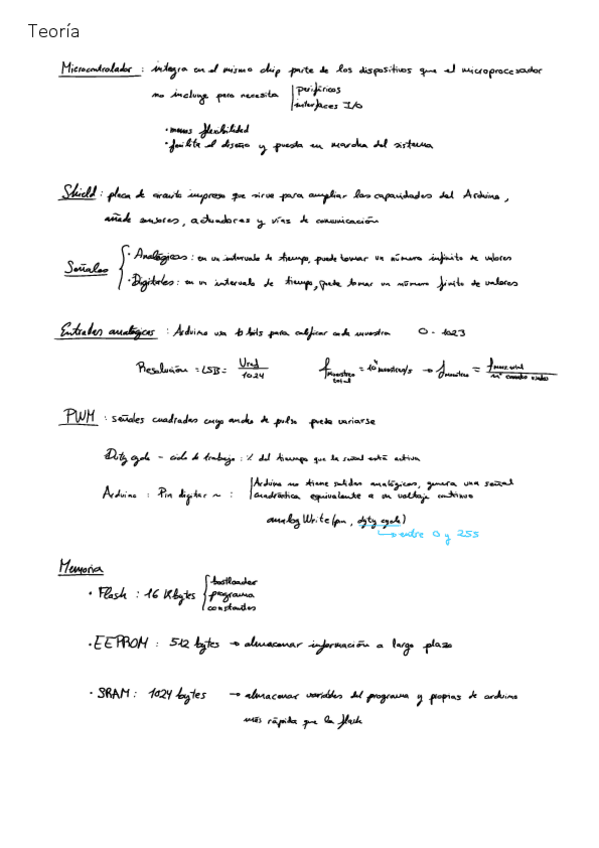 Teoría
Microcontrolador : integra en el mismo chip parte de los dispositivos que el microprocesador
no incluye pero necesita | periféricos
interfaces I/O
· menos flexibilidad
· facilita el diseño y puesta en marcha del sistema
Shield : placa de circuito impreso que sirve para ampliar las capacidades del Arduino,
añade sensores, actuadores y vías de comunicación
Señales { · Analógicas : en un intervalo de tiempo, puede tomar un número infinito de valores
· Digitales : en un intervalo de tiempo, puede tomar un número finito de valores
Entradas analógicas : Arduino usa 10 bits para codificar cada muestra 0 - 1023
Resolución = LSB = Vref / 1024 f muestreo total = 10⁴ muestras/s → f muestreo =
PWM : señales cuadradas cuyo ancho de pulso puede variarse
Duty cycle - ciclo de trabajo : % del tiempo que la señal está activa
Arduino : Pin digital ~ : | Arduino no tiene salidas analógicas, genera una señal
cuadrática equivalente a un voltaje continuo
analogWrite(pin, duty cycle)
→ entre 0 y 255
Memoria
· Flash : 16 Kbytes { bootloader
programa
constantes
· EEPROM : 512 bytes → almacenar información a largo plazo
· SRAM : 1024 bytes → almacenar variables del programa y propias de arduino
más rápida que la flash